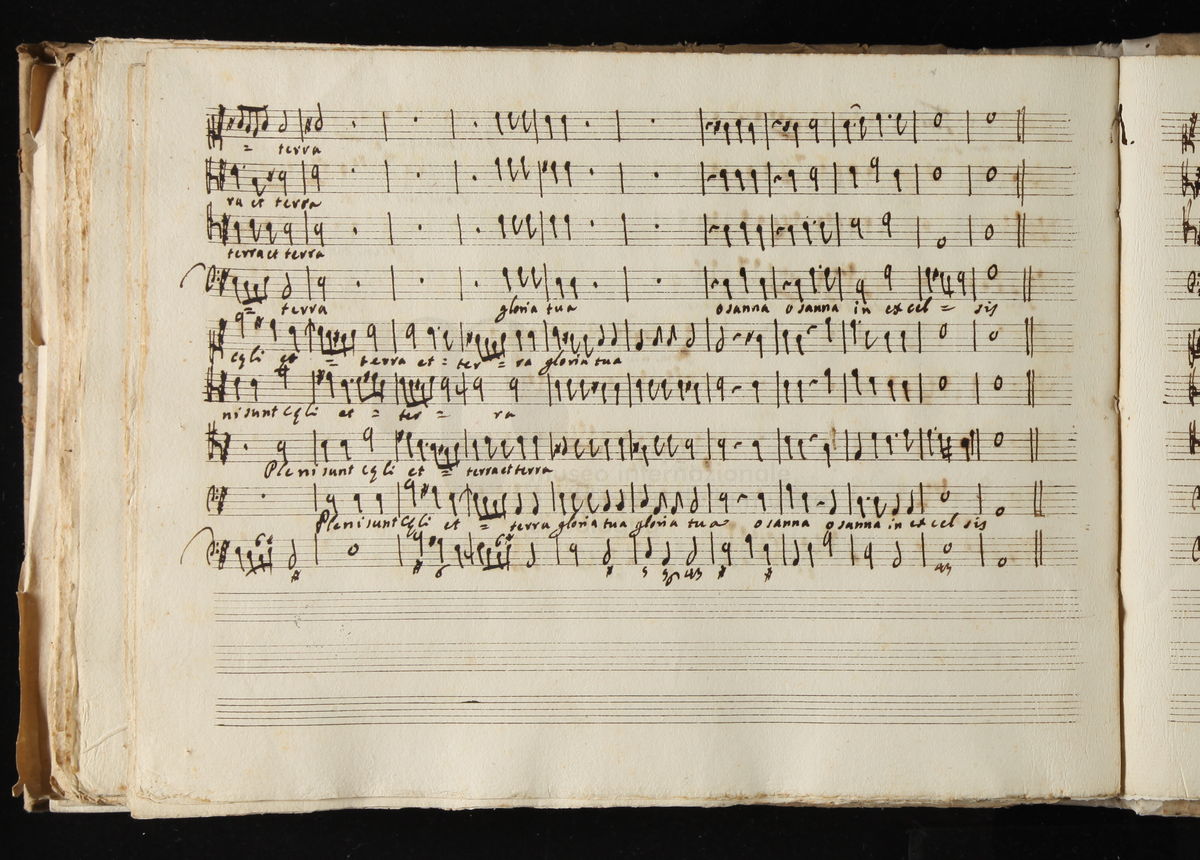 = terra
ra et terra
terra et terra
= terra gloria tua osanna osanna in excel = sis
cęli et = terra et = ter = ra gloria tua
ni sunt cęli et = ter = ra
Pleni sunt cęli et = terra et terra
museo internazionale
Pleni sunt cęli et = terra gloria tua gloria tua osanna osanna in excelsis
6
6
# # 6 # 5 56 43 # # 43